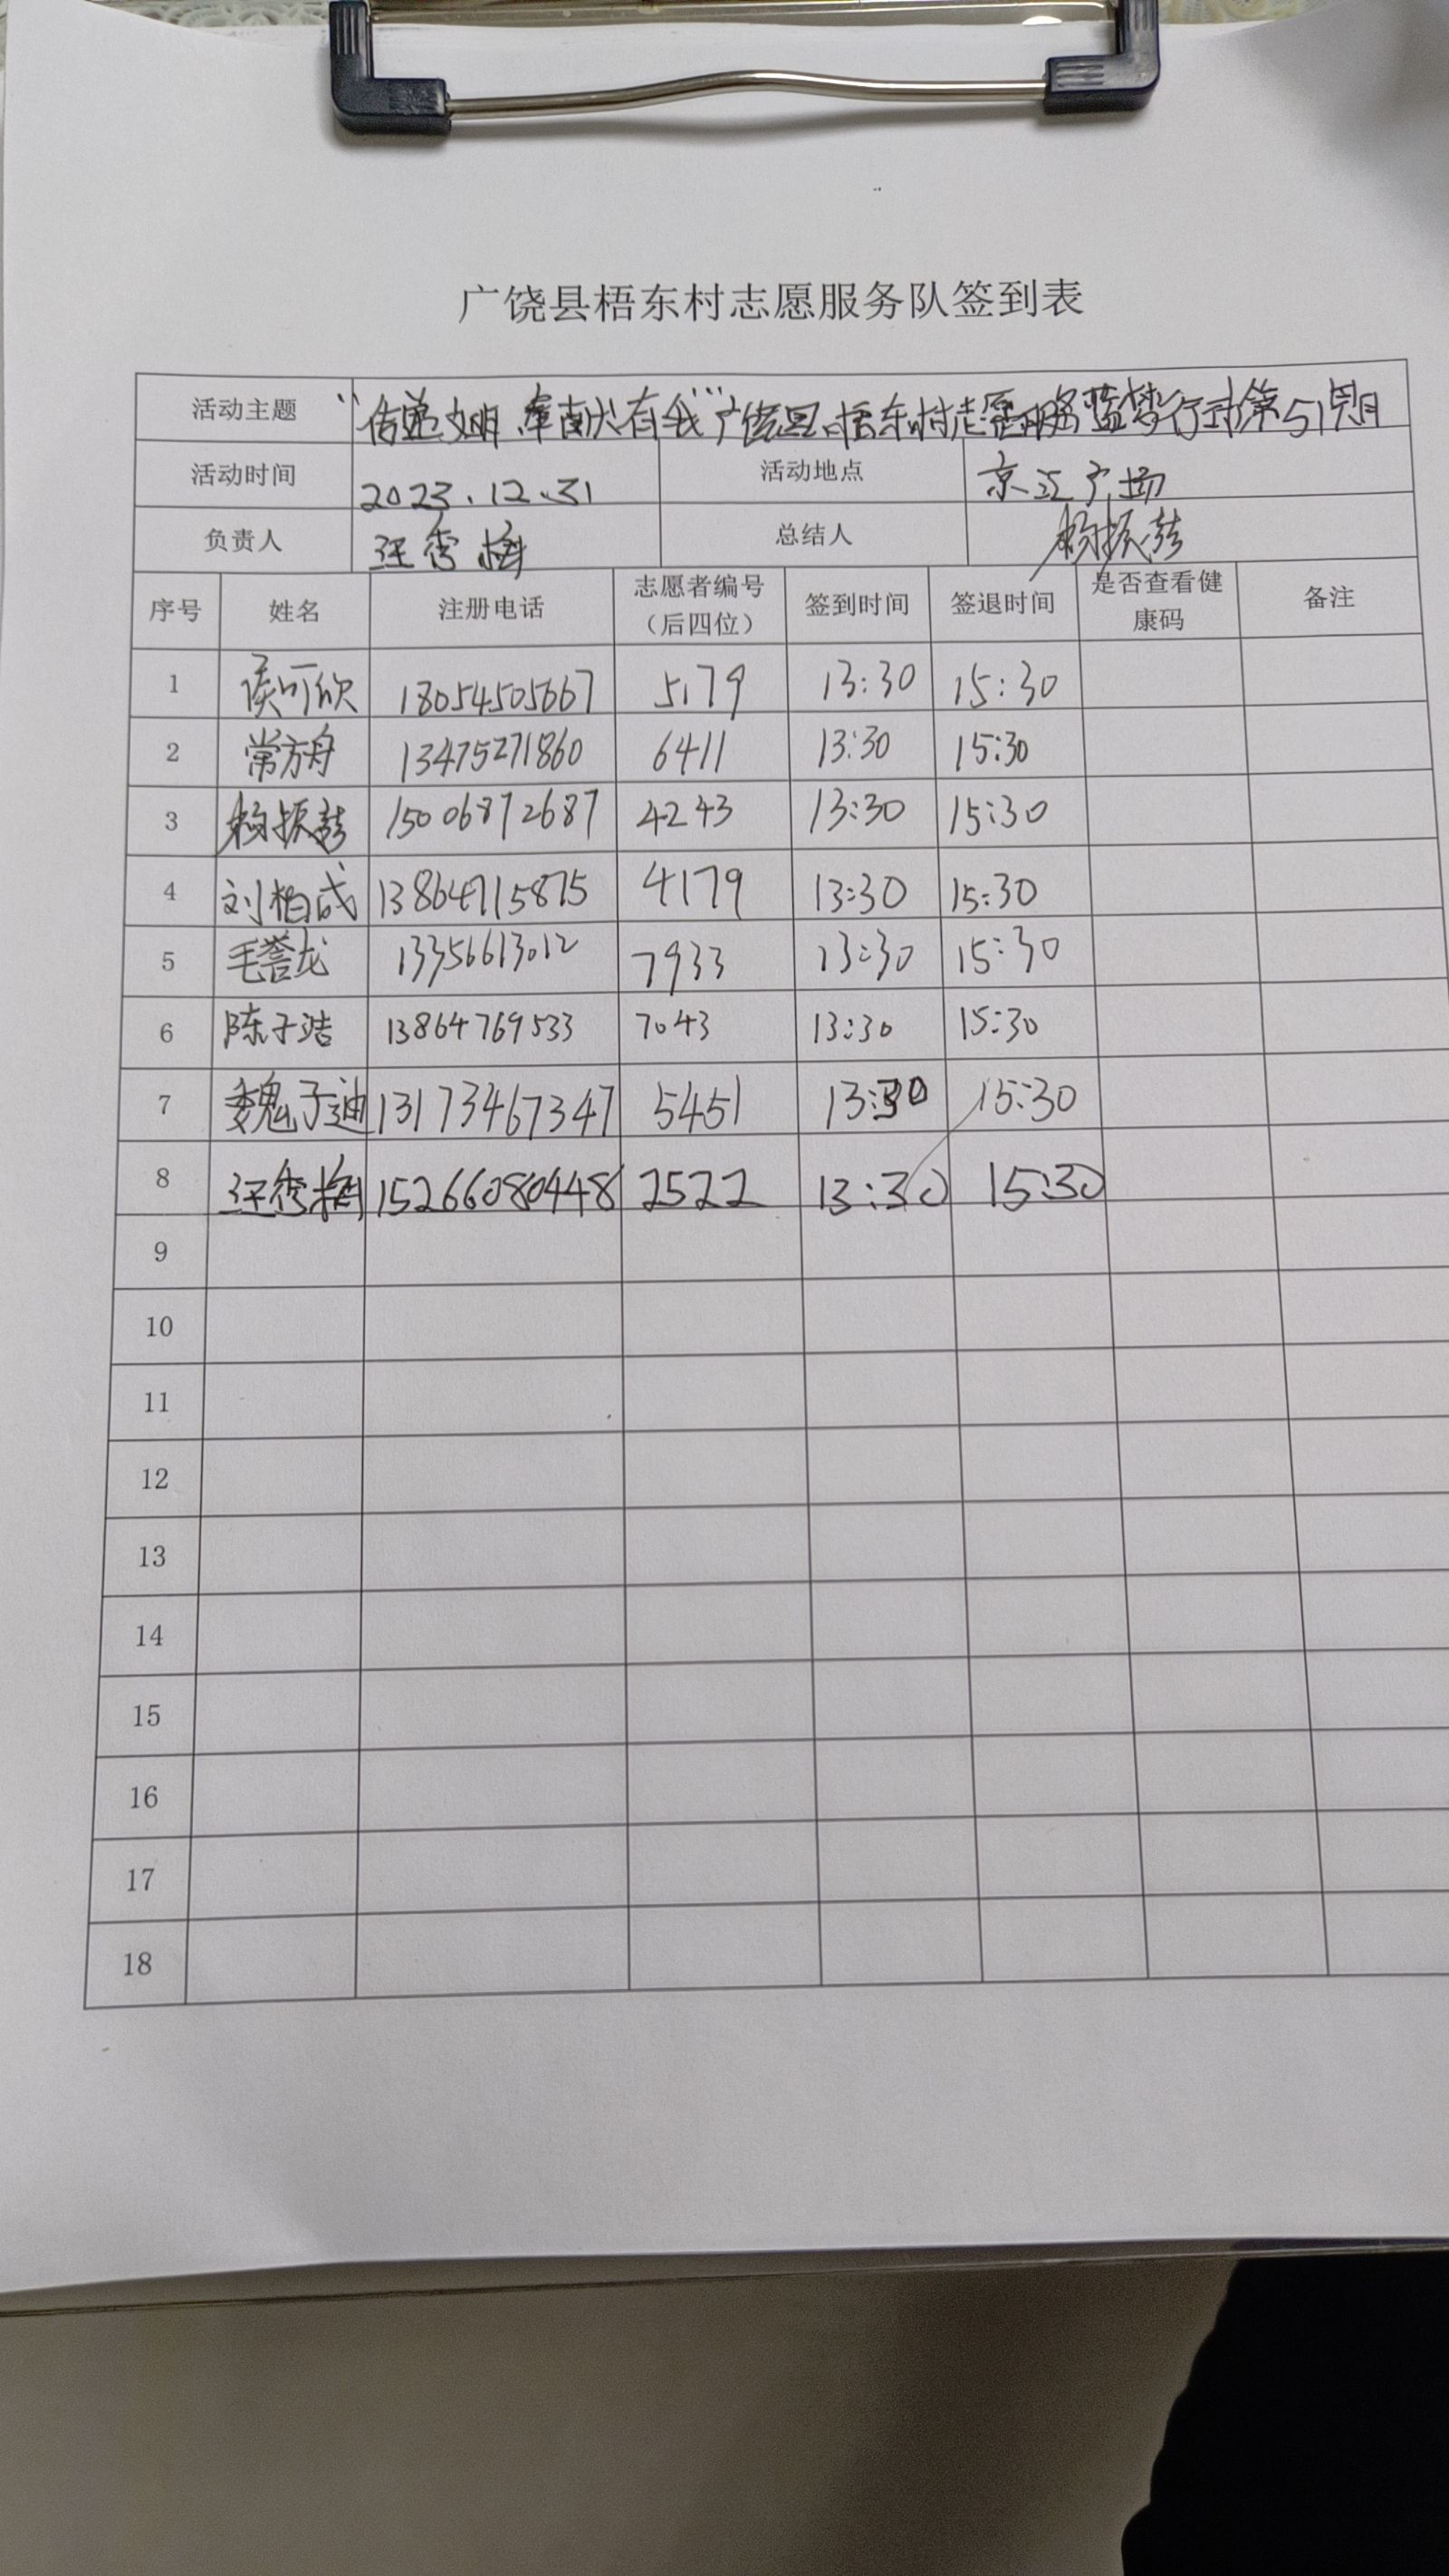 广饶县梧东村志愿服务队签到表
活动主题 “传递文明 奉献有我”广饶县梧东村志愿服务蓝梦行动第51周
活动时间 2023.12.31 活动地点 京江广场
负责人 汪秀梅 总结人 杨振
序号 姓名 注册电话 志愿者编号（后四位） 签到时间 签退时间 是否查看健康码 备注
1 侯可欣 18054505667 5179 13:30 15:30
2 常方舟 13475271860 6411 13:30 15:30
3 杨振 15006872687 4243 13:30 15:30
4 刘柏成 13864715875 4179 13:30 15:30
5 毛誉龙 13356613012 7933 13:30 15:30
6 陈子浩 13864769533 7043 13:30 15:30
7 魏子迪 13173467347 5451 13:30 15:30
8 汪秀梅 15266080448 2522 13:30 15:30
9
10
11
12
13
14
15
16
17
18